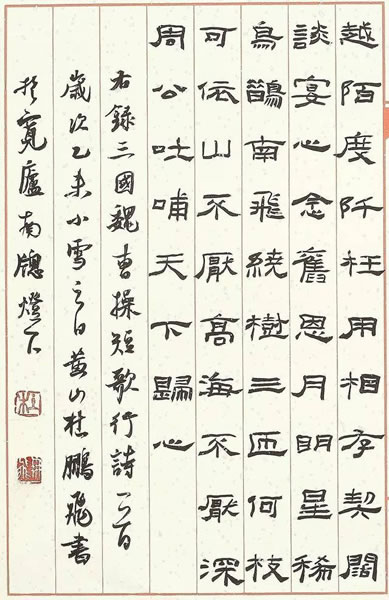 越陌度阡枉用相存契闊
談宴心念舊恩月明星稀
烏鵲南飛繞樹三匝何枝
可依山不厭高海不厭深
周公吐哺天下歸心
右錄三國魏曹操短歌行詩一首
歲次乙未小雪之日黃山杜鵬飛書
於寬廬南牕燈下